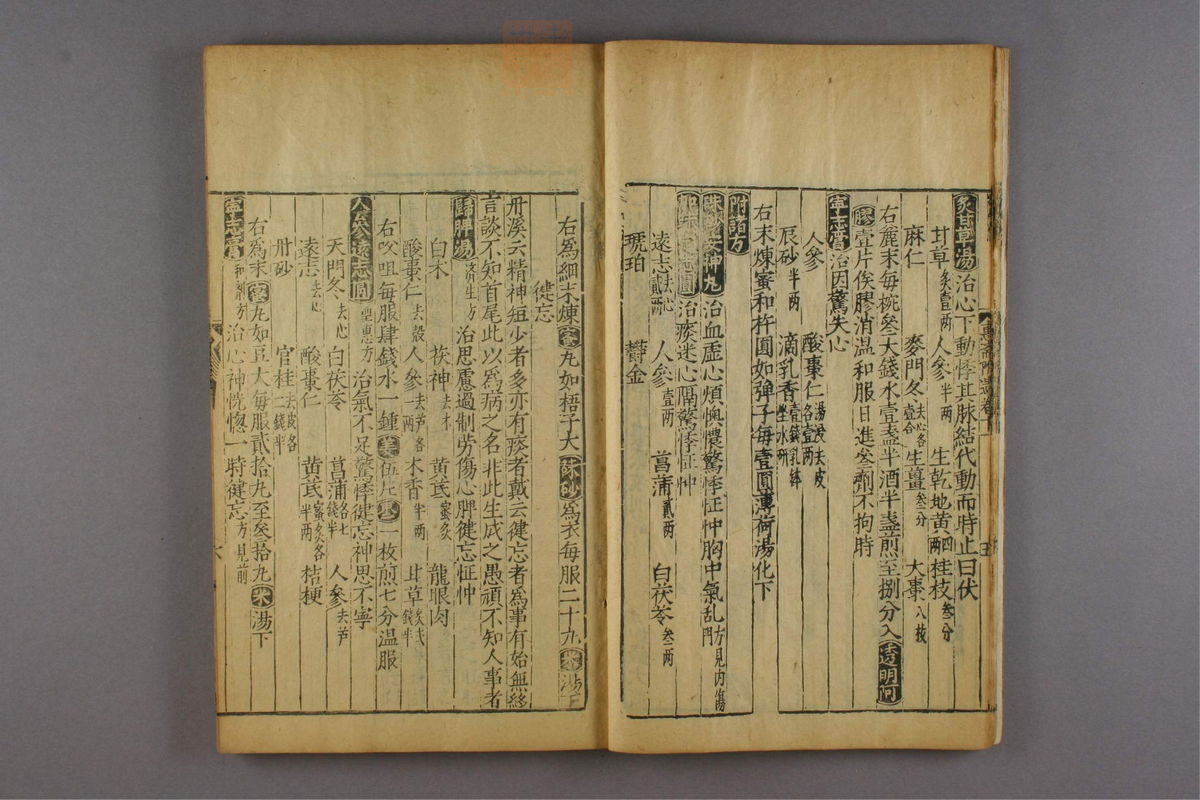 炙甘草湯治心下動悸其脉結代動而時止曰伏
甘草炙壹两 人參半两 生乾地黄四两 桂枝叁分
麻仁 麥門冬去心各壹合 生薑叁分 大棗八枚
右麄末每挑叁大錢水壹盞半酒半盞煎至捌分入透明阿
膠壹片俟膠消温和服日進叁劑不拘時
寧志膏治因驚失心
人參 酸棗仁湯浸去皮各壹两
辰砂半两 滴乳香壹錢乳鉢坐水研
右末煉蜜和杵圓如弹子每壹圓薄荷湯化下
附諸方
硃砂安神丸治血虚心煩懊憹驚悸怔忡胸中氣乱方見内傷門
治痰迷心膈驚悸怔忡
遠志去心貳两 人參壹两 菖蒲貳两 白茯苓叁两
琥珀 欝金
右爲細末煉蜜丸如梧子大硃砂爲衣每服二十丸米湯下
健忘
丹溪云精神短少者多亦有痰者戴云健忘者爲事有始無終
言談不知首尾此以爲病之名非此生成之愚頑不知人事者
歸脾湯济生方 治思慮過制勞傷心脾健忘怔忡
白术 茯神去木 黄茋蜜炙 龍眼肉
酸棗仁去殻 人參去芦各一两 木香半两 甘草炙弍錢半
右㕮咀每服肆錢水一鍾姜伍片棗一枚煎七分温服
人參遠志圓聖惠方 治氣不足驚悸健忘神思不寧
天門冬去心 白茯苓 菖蒲各七錢半 人參去芦
遠志去心 酸棗仁 黄茋蜜炙各半两 桔梗
丹砂 官桂去皮各二錢半
右爲末蜜丸如豆大每服貳拾丸至叁拾丸米湯下
寧志膏和劑方 治心神恍惚一時健忘方見前